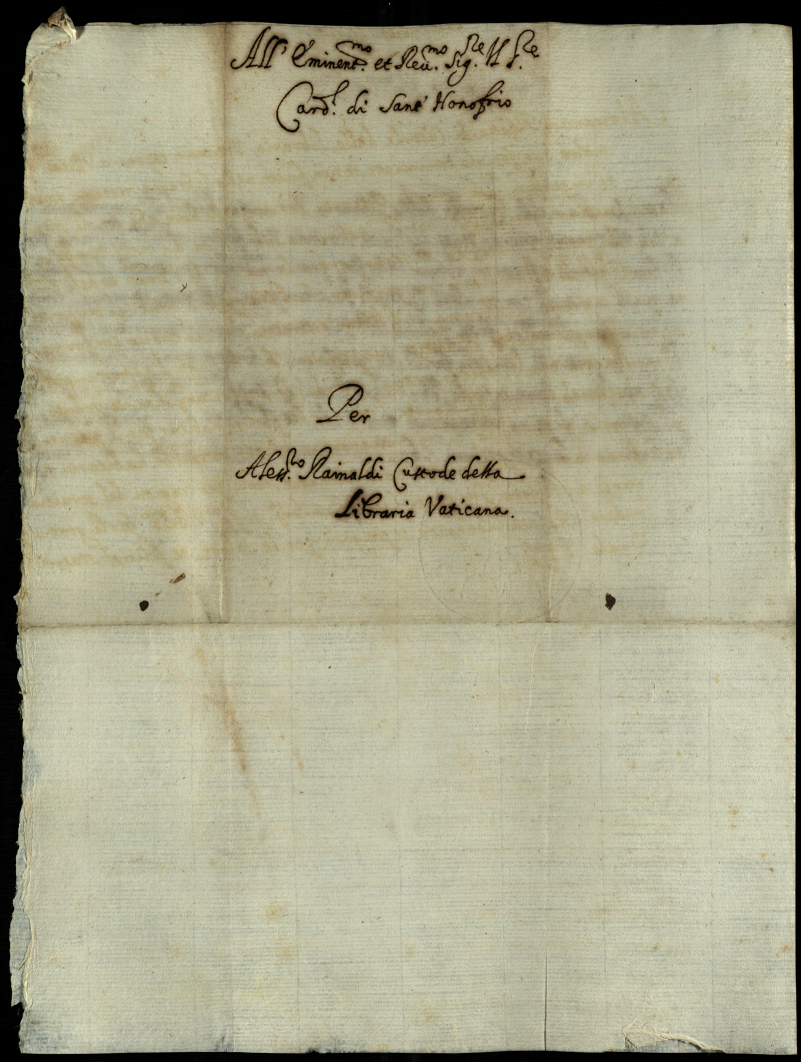 All' Eminent.mo et Reu.mo Sig.re Il S.re
Card.l di Sant' Honofrio
Per
Aless.ro Rainaldi Custode della
Libraria Vaticana.